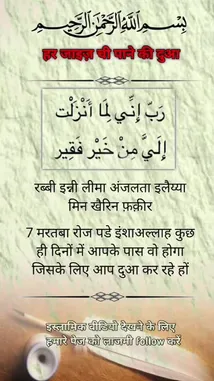 بِسْمِ اللهِ الرَّحْمٰنِ الرَّحِيْمِ
हर जाइज़ ची पाने की दुआ
رَبِّ إِنِّي لِمَا أَنْزَلْتَ
إِلَيَّ مِنْ خَيْرٍ فَقِير
रब्बी इन्नी लीमा अंजलता इलैय्या
मिन खैरिन फ़क़ीर
7 मरतबा रोज पडे इंशाअल्लाह कुछ
ही दिनों में आपके पास वो होगा
जिसके लिए आप दुआ कर रहे हों
इस्लामिक वीडियो देखने के लिए
हमारे पेज को लाजमी follow करें